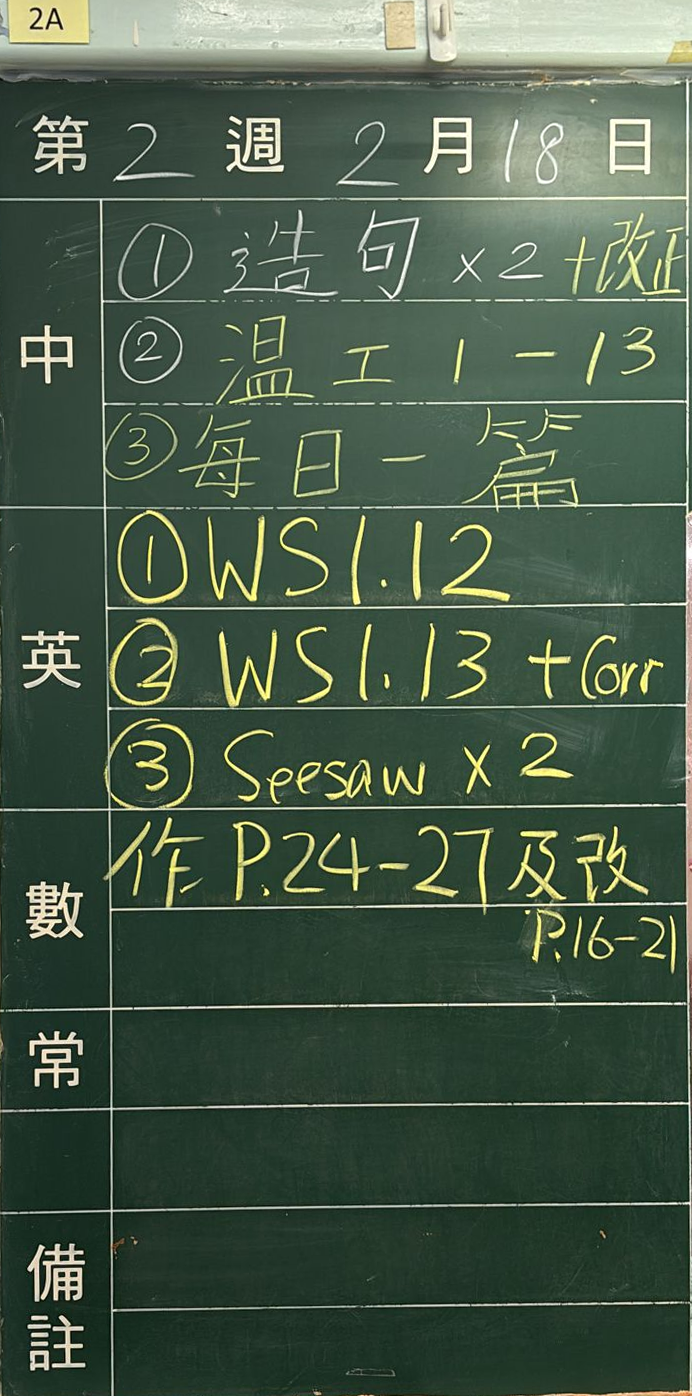 2A
第 2 週 2 月 18 日
中
① 造句 x2 +改正
② 温工 1-13
③ 每日一篇
英
① WS1.12
② WS1.13 + Corr
③ Seesaw x 2
數
作 P.24-27及改
P.16-21
常
備註